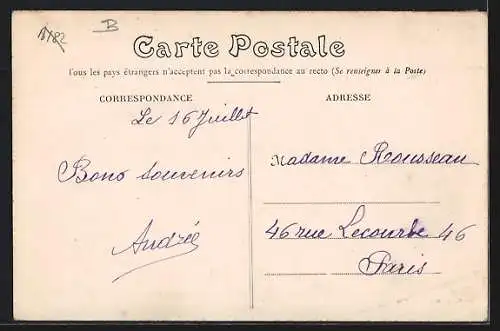 1482
B
Carte Postale
Tous les pays étrangers n'acceptent pas la correspondance au recto (Se renseigner à la Poste)
CORRESPONDANCE
Le 16 Juillet
Bons souvenirs
Andrée
ADRESSE
Madame Rousseau
46 rue Lecourbe 46
Paris